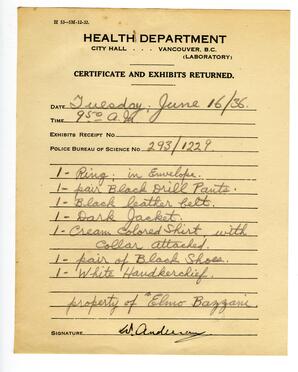 H 53—5M-12-32.
HEALTH DEPARTMENT
CITY HALL . . . VANCOUVER, B.C.
(LABORATORY)
CERTIFICATE AND EXHIBITS RETURNED.
DATE Tuesday, June 16/36.
TIME 9:50 A.M
EXHIBITS RECEIPT NO.
POLICE BUREAU OF SCIENCE NO. 293/1229
1- Ring; in Envelope.
1- pair Black Drill Pants.
1- Black leather belt.
1- Dark Jacket.
1- Cream Colored Shirt, with
Collar attached.
1- pair of Black Shoes.
1- White Handkerchief.
property of "Elmo Bazzani
SIGNATURE W. Anderson